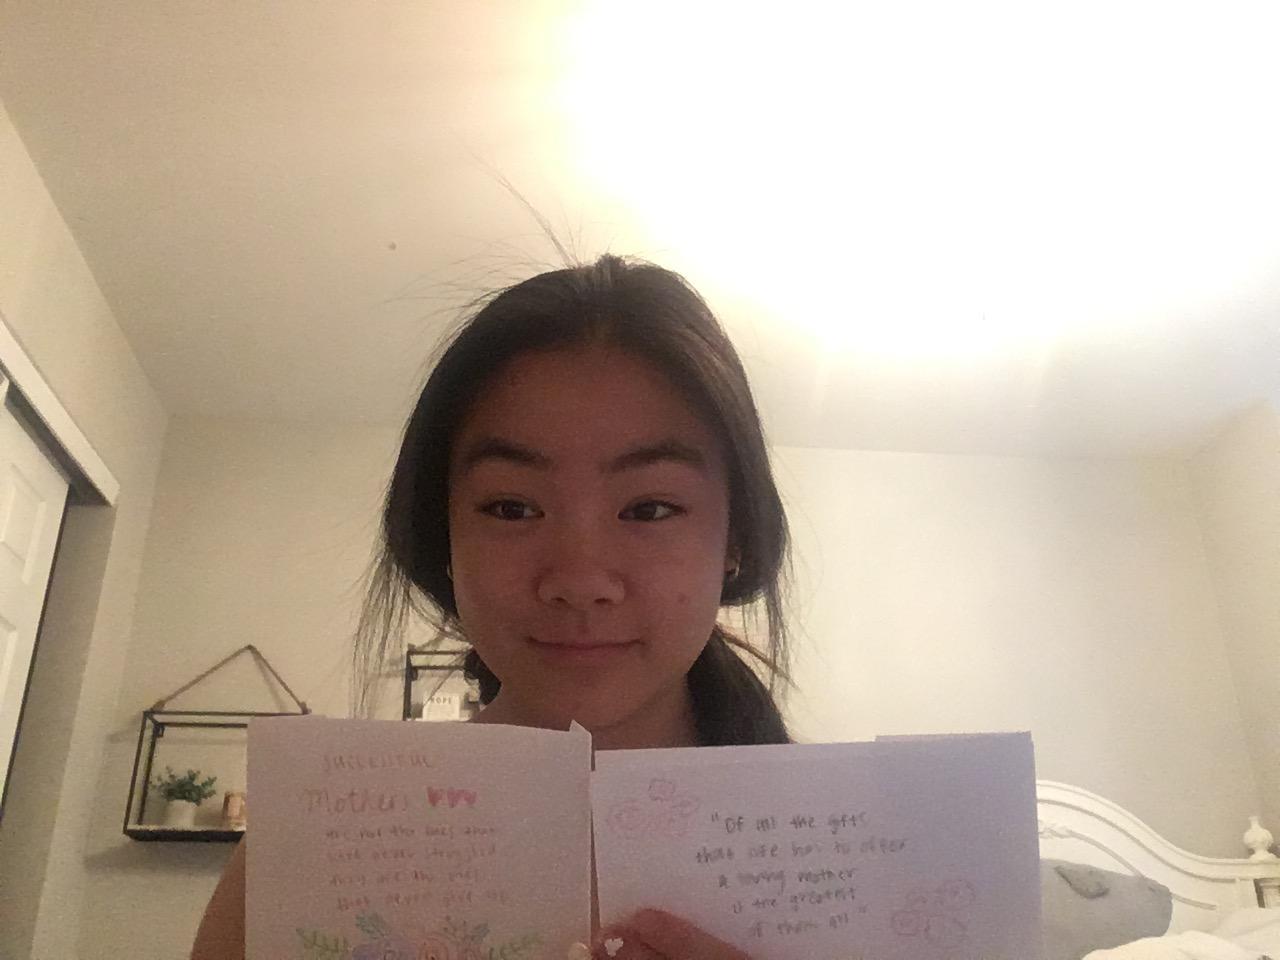 HOPE
SUCCESSFUL
Mothers
are not the ones that
have never struggled
they are the ones
that never give up
"Of all the gifts
that life has to offer
a loving mother
is the greatest
of them all"